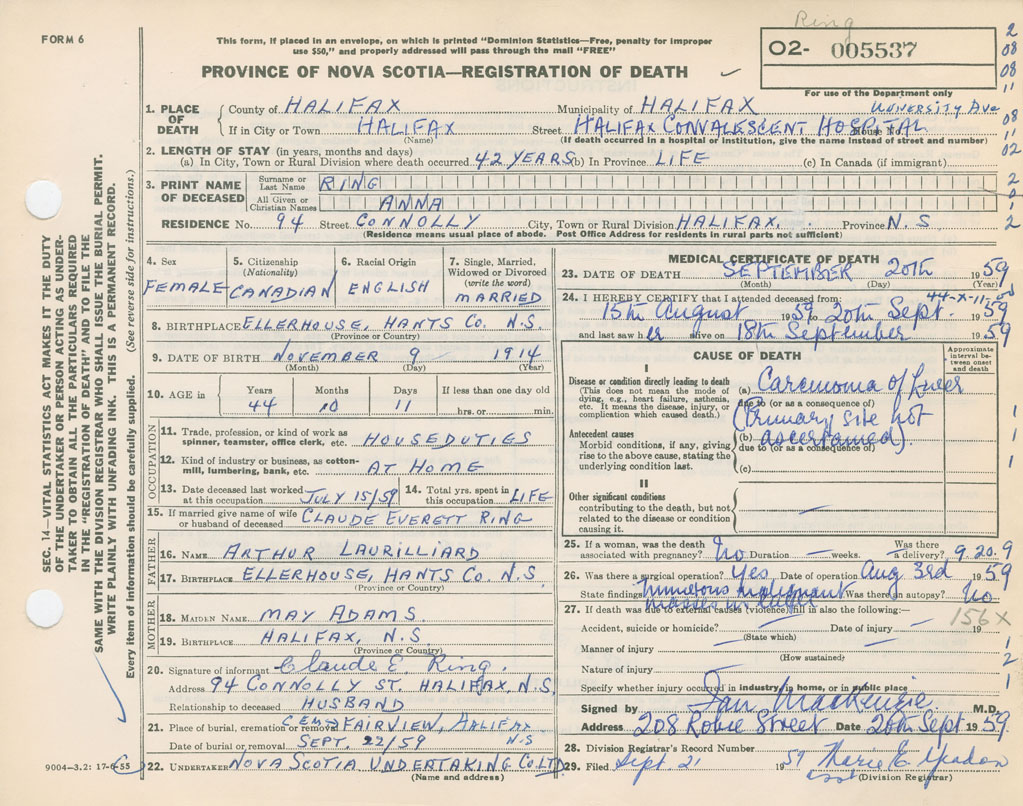 Ring
FORM 6
This form, if placed in an envelope, on which is printed "Dominion Statistics—Free, penalty for improper
use $50," and properly addressed will pass through the mail "FREE"
O2- 005537
PROVINCE OF NOVA SCOTIA—REGISTRATION OF DEATH
For use of the Department only
1. PLACE OF DEATH County of HALIFAX Municipality of HALIFAX UNIVERSITY AVE
If in City or Town HALIFAX Street HALIFAX CONVALESCENT HOSPITAL House No.
(Name) (If death occurred in a hospital or institution, give the name instead of street and number)
2. LENGTH OF STAY (in years, months and days)
(a) In City, Town or Rural Division where death occurred 42 YEARS (b) In Province LIFE (c) In Canada (if immigrant)
3. PRINT NAME OF DECEASED Surname or Last Name RING
All Given or Christian Names ANNA
RESIDENCE No. 94 Street CONNOLLY City, Town or Rural Division HALIFAX. Province N.S
(Residence means usual place of abode. Post Office Address for residents in rural parts not sufficient)
4. Sex FEMALE
5. Citizenship (Nationality) CANADIAN
6. Racial Origin ENGLISH
7. Single, Married, Widowed or Divorced (write the word) MARRIED
8. BIRTHPLACE ELLERHOUSE, HANTS CO. N.S.
(Province or Country)
9. DATE OF BIRTH NOVEMBER 9 1914
(Month) (Day) (Year)
10. AGE in Years 44 Months 10 Days 11 If less than one day old hrs. or min.
OCCUPATION
11. Trade, profession, or kind of work as spinner, teamster, office clerk, etc. HOUSEDUTIES
12. Kind of industry or business, as cotton-mill, lumbering, bank, etc. AT HOME
13. Date deceased last worked at this occupation JULY 15/59
14. Total yrs. spent in this occupation LIFE
15. If married give name of wife or husband of deceased CLAUDE EVERETT RING
FATHER
16. NAME ARTHUR LAURILLIARD
17. BIRTHPLACE ELLERHOUSE, HANTS CO. N.S.
(Province or Country)
MOTHER
18. MAIDEN NAME MAY ADAMS
19. BIRTHPLACE HALIFAX, N.S
(Province or Country)
20. Signature of informant Claude E. Ring.
Address 94 CONNOLLY ST. HALIFAX, N.S.
Relationship to deceased HUSBAND
21. Place of burial, cremation or removal CEM. FAIRVIEW, HALIFAX N.S
Date of burial or removal SEPT. 22/59
22. UNDERTAKER NOVA SCOTIA UNDERTAKING CO. LTD
(Name and address)
MEDICAL CERTIFICATE OF DEATH
23. DATE OF DEATH SEPTEMBER 20TH 1959
(Month) (Day) (Year)
24. I HEREBY CERTIFY that I attended deceased from:
44-X-11
15th August 1959 to 20th Sept. 1959
and last saw her alive on 18th September 1959
CAUSE OF DEATH
Approximate interval between onset and death
I
Disease or condition directly leading to death
(This does not mean the mode of dying, e.g., heart failure, asthenia, etc. It means the disease, injury, or complication which caused death.)
(a) Carcinoma of Liver
due to (or as a consequence of)
(Primary site not
Antecedent causes
Morbid conditions, if any, giving rise to the above cause, stating the underlying condition last.
(b) ascertained).
due to (or as a consequence of)
(c)
II
Other significant conditions
contributing to the death, but not related to the disease or condition causing it.
25. If a woman, was the death associated with pregnancy? No Duration — weeks. Was there a delivery? — 9.20.9
26. Was there a surgical operation? Yes Date of operation Aug 3rd 1959
State findings numerous malignant masses in liver Was there an autopsy? No
27. If death was due to external causes (violence) fill in also the following:—
156X
Accident, suicide or homicide? — Date of injury — 19
(State which)
Manner of injury —
(How sustained)
Nature of injury —
Specify whether injury occurred in industry, in home, or in public place
Signed by Ian MacKenzie M.D.
Address 208 Robie Street Date 20th Sept 1959
28. Division Registrar's Record Number
29. Filed Sept. 21 1959 Marie E.
(Division Registrar)
SEC. 14—VITAL STATISTICS ACT MAKES IT THE DUTY
OF THE UNDERTAKER OR PERSON ACTING AS UNDER-
TAKER TO OBTAIN ALL THE PARTICULARS REQUIRED
IN THE "REGISTRATION OF DEATH" AND TO FILE THE
SAME WITH THE DIVISION REGISTRAR WHO SHALL ISSUE THE BURIAL PERMIT.
WRITE PLAINLY WITH UNFADING INK. THIS IS A PERMANENT RECORD.
Every item of information should be carefully supplied. (See reverse side for instructions.)
9004—3.2: 17-6-55
2
08
08
11
08
11
02
2
0
1
2
1
1
1
1
2
1